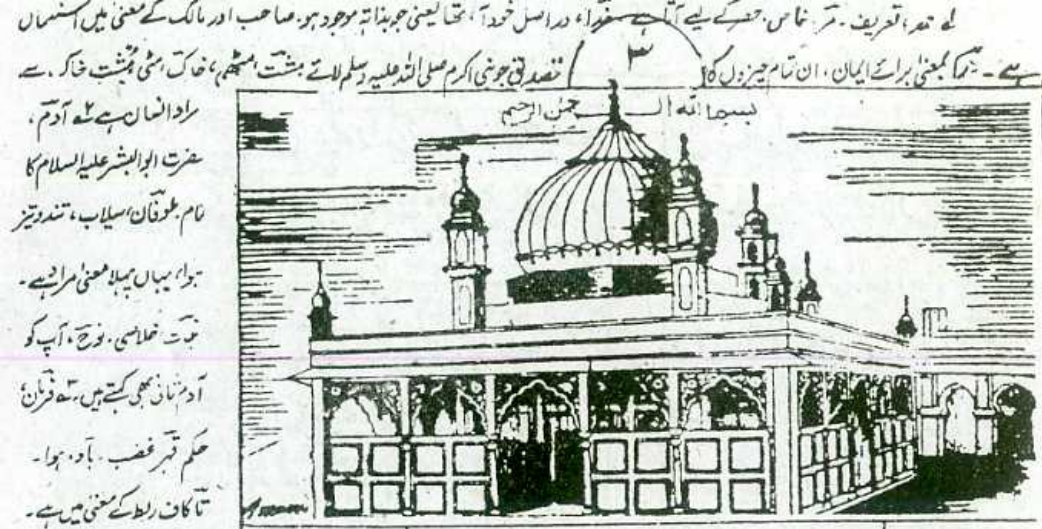 لے حمد، تعریف۔ مر، خاص۔ حصر کے لیے آتا ہے۔ خدا، در اصل خود آ، تھا یعنی جو بذاتہ موجود ہو۔ صاحب اور مالک کے معنیٰ میں استعمال
ہے۔ بمعنیٰ برائے ایمان، ان تمام چیزوں کا تصدیق جو نبی اکرم صلی اللہ علیہ وسلم لائے مشت، مٹھی، خاک، مٹی مشت خاک، سے
۳
بسم الله الرحمن الرحيم
مراد انسان ہے ۲ے آدم،
حضرت ابو البشر علیہ السلام کا
نام طوفان، سیلاب، تند و تیز
ہوا، یہاں پہلا معنیٰ مراد ہے۔
نجات خلاصی۔ نوح، آپ کو
آدم ثانی بھی کہتے ہیں، ۳ے فرمان،
حکم قہر غضب۔ باد، ہوا۔
تا کاف ربط کے معنیٰ میں ہے۔